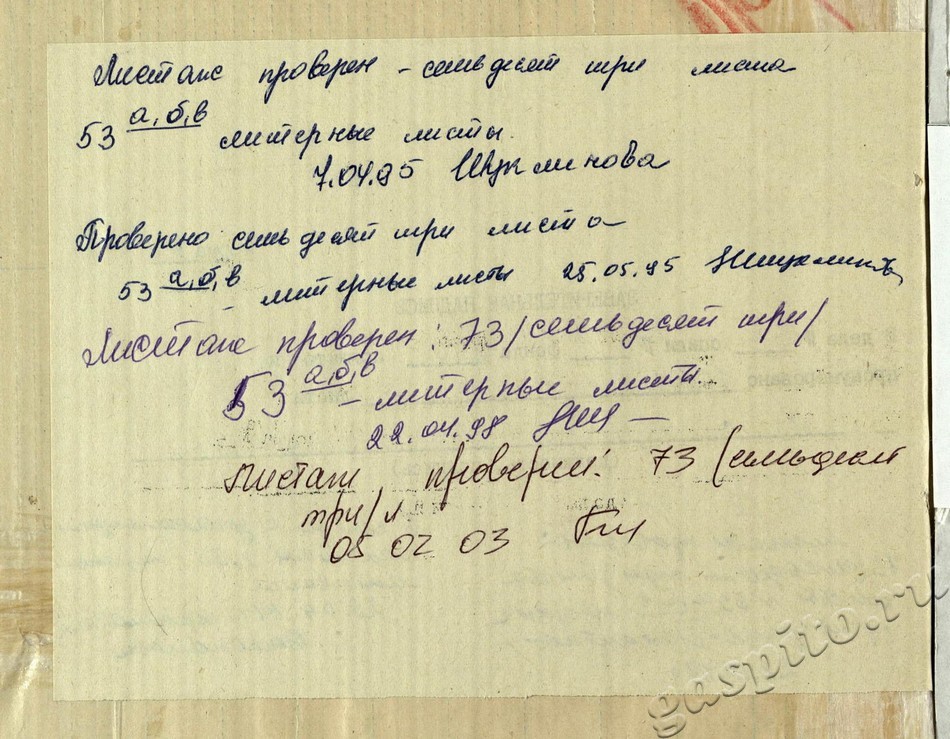 Листаж проверен - семьдесят три листа
53 а,б,в литерные листы.
7.04.95
Проверено семьдесят три листа
53 а,б,в литерные листы 25.05.95
Листаж проверен: 73 /семьдесят три/
53 а,б,в - литерные листы.
22.04.98
Листаж проверен: 73 /семьдесят
три/ л
05 02 03
gaspito.ru